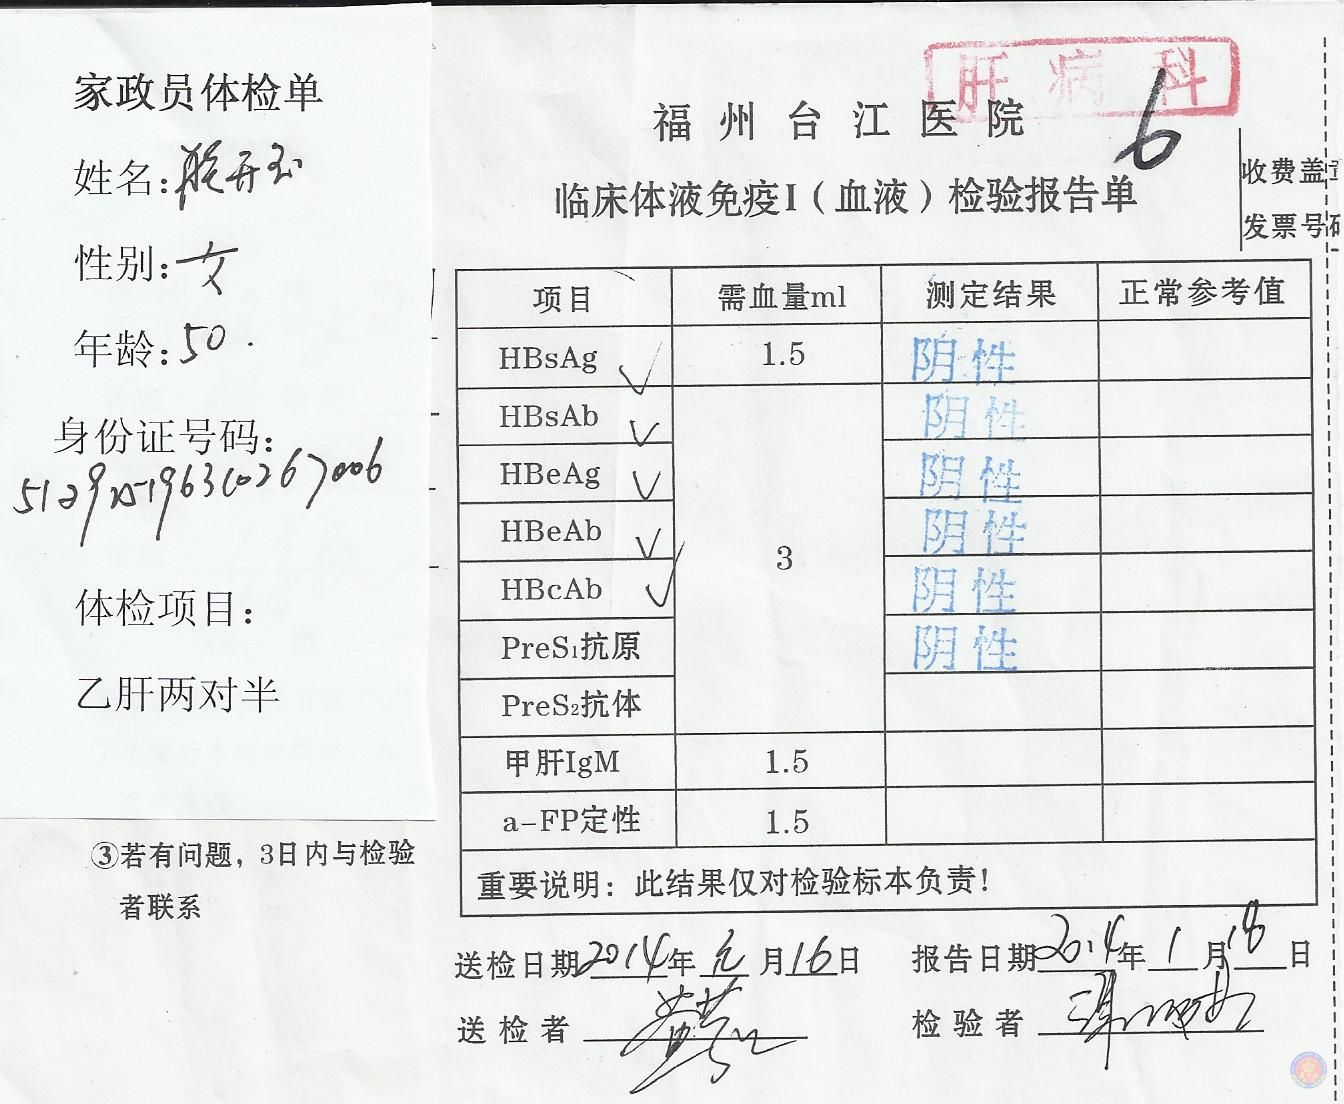 家政员体检单
姓名:
性别:女
年龄:50.
身份证号码:
体检项目:
乙肝两对半
③若有问题，3日内与检验
者联系
肝病科
福州台江医院
6
临床体液免疫I（血液）检验报告单
收费盖
发票号码
项目 需血量ml 测定结果 正常参考值
HBsAg 1.5 阴性
HBsAb 阴性
HBeAg 阴性
HBeAb 3 阴性
HBcAb 阴性
PreS₁抗原 阴性
PreS₂抗体
甲肝IgM 1.5
a-FP定性 1.5
重要说明：此结果仅对检验标本负责!
送检日期2014年元月16日 报告日期2014年1月18日
送检者 检验者